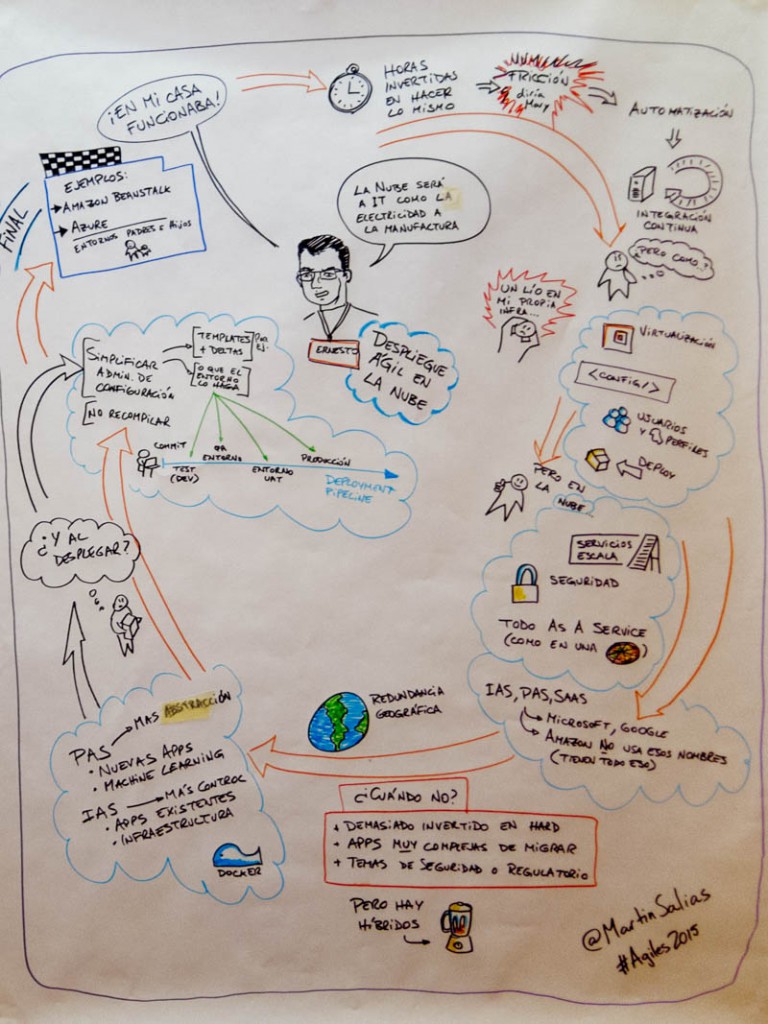 ¡EN MI CASA
FUNCIONABA!
HORAS
INVERTIDAS
EN HACER
LO MISMO
FRICCIÓN
diría
Mary
AUTOMATIZACIÓN
INTEGRACIÓN
CONTINUA
¿PERO COMO..?
LA NUBE SERÁ
A IT COMO LA
ELECTRICIDAD A
LA MANUFACTURA
ERNESTO
DESPLIEGUE
ÁGIL EN
LA NUBE
UN LÍO EN
MI PROPIA
INFRA...
VIRTUALIZACIÓN
<CONFIG/>
USUARIOS
Y PERFILES
DEPLOY
PERO EN
LA NUBE
SERVICIOS
ESCALA
SEGURIDAD
TODO AS A SERVICE
(COMO EN UNA )
IAS, PAS, SAAS
MICROSOFT, GOOGLE
AMAZON NO USA ESOS NOMBRES
(TIENEN TODO ESO)
REDUNDANCIA
GEOGRÁFICA
¿CUÁNDO NO?
+ DEMASIADO INVERTIDO EN HARD
+ APPS MUY COMPLEJAS DE MIGRAR
+ TEMAS DE SEGURIDAD O REGULATORIO
PERO HAY
HÍBRIDOS
PAS MAS ABSTRACCIÓN
• NUEVAS APPS
• MACHINE LEARNING
IAS MÁS CONTROL
• APPS EXISTENTES
• INFRAESTRUCTURA
DOCKER
¿Y AL
DESPLEGAR?
SIMPLIFICAR
ADMIN. DE
CONFIGURACIÓN
NO RECOMPILAR
TEMPLATES
+ DELTAS
Por ej.
O QUE EL
ENTORNO
LO HAGA
COMMIT
TEST
(DEV)
QA
ENTORNO
ENTORNO
UAT
PRODUCCIÓN
DEPLOYMENT
PIPELINE
FINAL
EJEMPLOS:
AMAZON BEANSTALK
AZURE
ENTORNOS PADRES E HIJOS
@MartinSalias
#Agiles2015